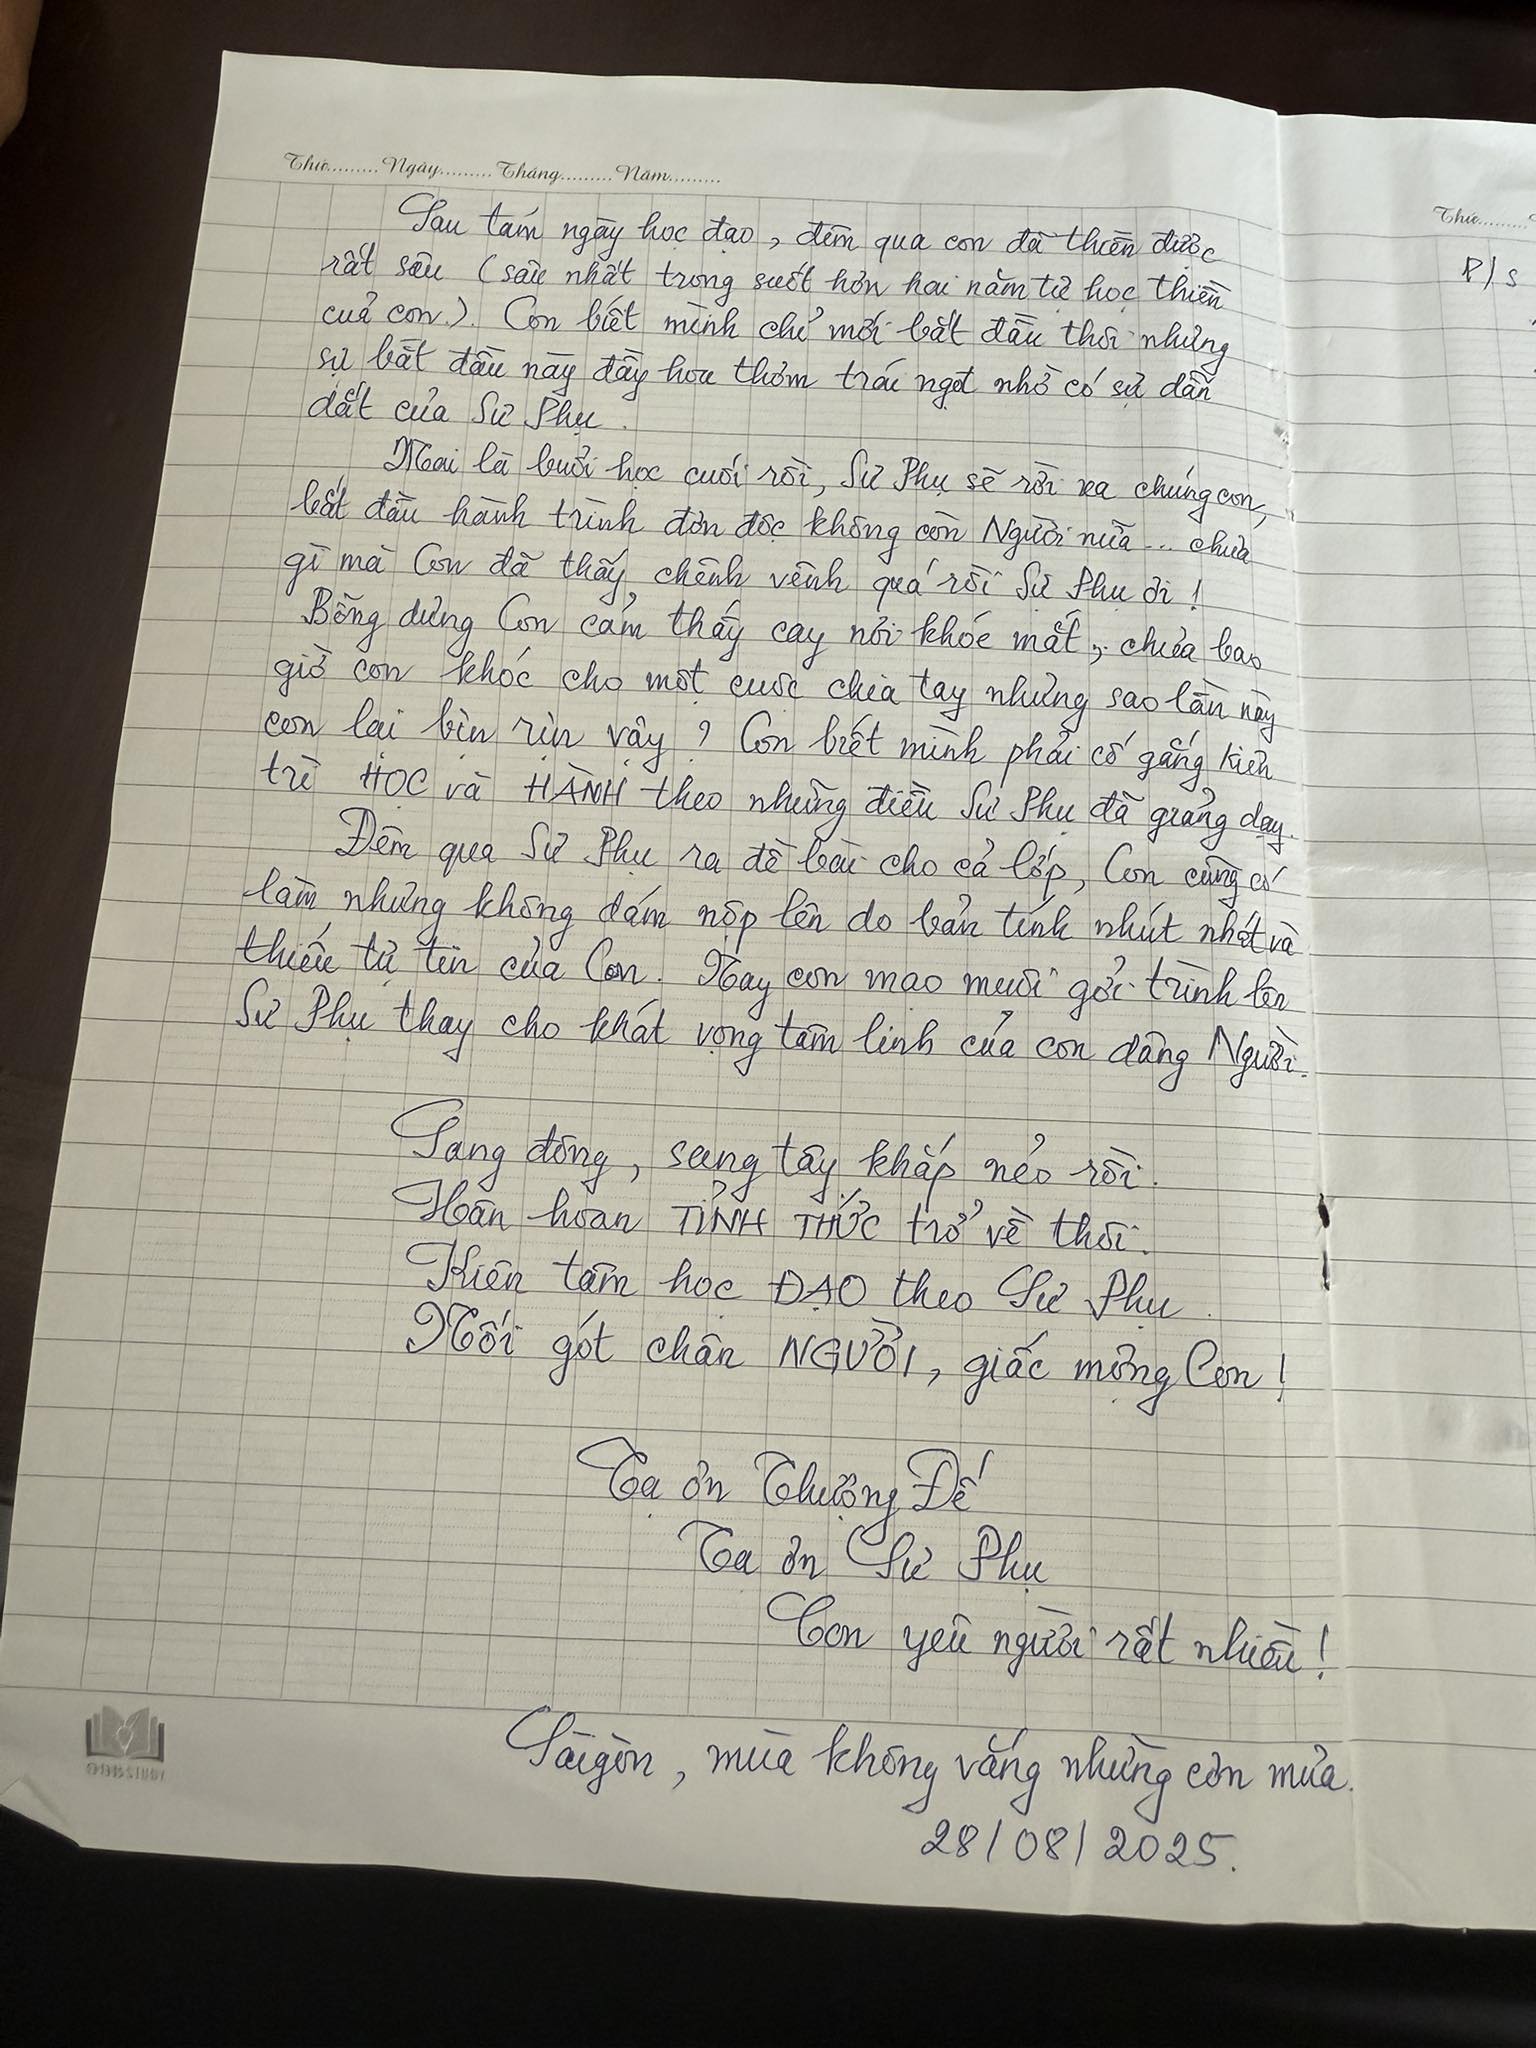 Thứ......... Ngày......... Tháng......... Năm.........
Sau tám ngày học đạo, đêm qua con đã thiền được
rất sâu (sâu nhất trong suốt hơn hai năm tự học thiền
của con.). Con biết mình chỉ mới bắt đầu thôi nhưng
sự bắt đầu này đầy hoa thơm trái ngọt nhờ có sự dẫn
dắt của Sư Phụ.
Mai là buổi học cuối rồi, Sư Phụ sẽ rời xa chúng con,
bắt đầu hành trình đơn độc không còn Người nữa... chưa
gì mà Con đã thấy chênh vênh quá rồi Sư Phụ ơi!
Bỗng dưng Con cảm thấy cay nơi khóe mắt, chưa bao
giờ con khóc cho một cuộc chia tay nhưng sao lần này
con lại bịn rịn vậy? Con biết mình phải cố gắng kiên
trì HỌC và HÀNH theo những điều Sư Phụ đã giảng dạy.
Đêm qua Sư Phụ ra đề bài cho cả lớp, Con cũng có
làm nhưng không dám nộp lên do bản tính nhút nhát và
thiếu tự tin của Con. Nay con mạo muội gởi trình lên
Sư Phụ thay cho khát vọng tâm linh của con dâng Người.
Sang đông, sang tây khắp nẻo rồi.
Hân hoan TỈNH THỨC trở về thôi.
Kiên tâm học ĐẠO theo Sư Phụ.
Nối gót chân NGƯỜI, giấc mộng Con!
Tạ ơn Thượng Đế
Tạ ơn Sư Phụ
Con yêu người rất nhiều!
Sàigòn, mùa không vắng những cơn mưa.
28/08/2025.
Thứ.........
P/S